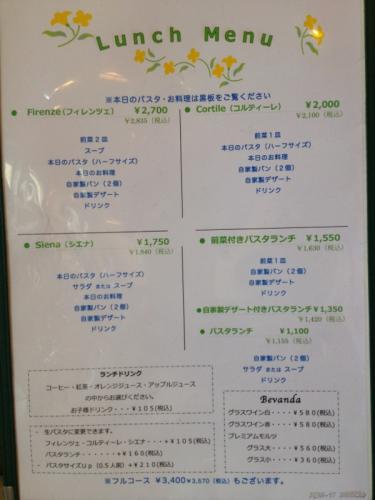 Lunch Menu
※本日のパスタ・お料理は黒板をご覧ください
● Firenze(フィレンツェ) ￥2,700
￥2,835 (税込)
前菜２皿
スープ
本日のパスタ (ハーフサイズ)
本日のお料理
自家製パン (２個)
自家製デザート
ドリンク
● Cortile (コルティーレ) ￥2,000
￥2,100 (税込)
前菜１皿
本日のパスタ (ハーフサイズ)
本日のお料理
自家製パン (２個)
自家製デザート
ドリンク
● Siena (シエナ) ￥1,750
￥1,840 (税込)
本日のパスタ (ハーフサイズ)
サラダ または スープ
本日のお料理
自家製パン (２個)
ドリンク
● 前菜付きパスタランチ ￥1,550
￥1,630 (税込)
前菜１皿
自家製パン (２個)
ドリンク
●自家製デザート付きパスタランチ￥1,350
￥1,420 (税込)
● パスタランチ ￥1,100
￥1,155 (税込)
自家製パン (２個)
サラダ または スープ
ドリンク
ランチドリンク
コーヒー・紅茶・オレンジジュース・アップルジュース
の中からお選びください。
お子様ドリンク・・・￥105(税込)
生パスタに変更できます。
フィレンツェ・コルティーレ・シエナ・・・+￥105(税込)
パスタランチ・・・・・・+￥160(税込)
パスタサイズＵｐ (0.5人前) +￥210(税込)
Bevanda
グラスワイン白・・・・￥580(税込)
グラスワイン赤・・・・￥580(税込)
プレミアムモルツ
グラス大・・・・￥560(税込)
グラス小・・・・￥360(税込)
※フルコース ￥3,400 ￥3,570 (税込) もございます。